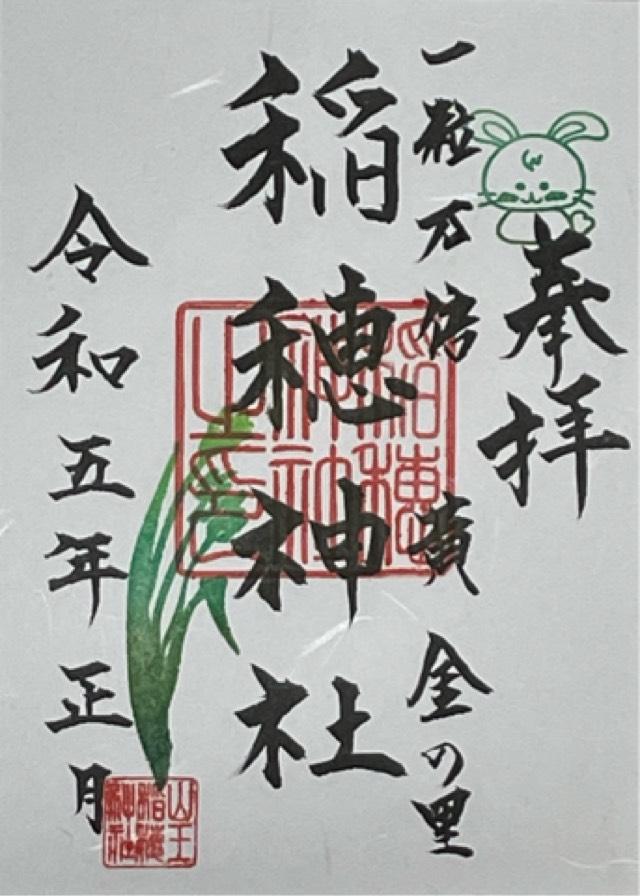 奉拝
一粒万倍 黄金の里
稲穂神社
令和五年正月
稲穂神社之印
山王稲穂神社